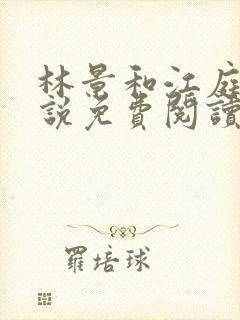 林景和江庭
說免費閱讀
羅培球